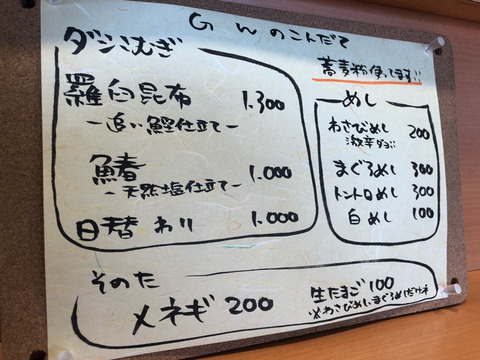 Gんのこんだて
ダシ:こむぎ
羅臼昆布 1.300
ー追い鰹仕立てー
鰆 1.000
ー天然塩仕立てー
日替わり 1.000
蕎麦粉使ってます!!
めし
わさびめし 200
激辛
まぐろめし 300
トントロめし 300
白めし 100
そのた
メネギ 200
生たまご 100
※わさびめし、まぐろめしだけ